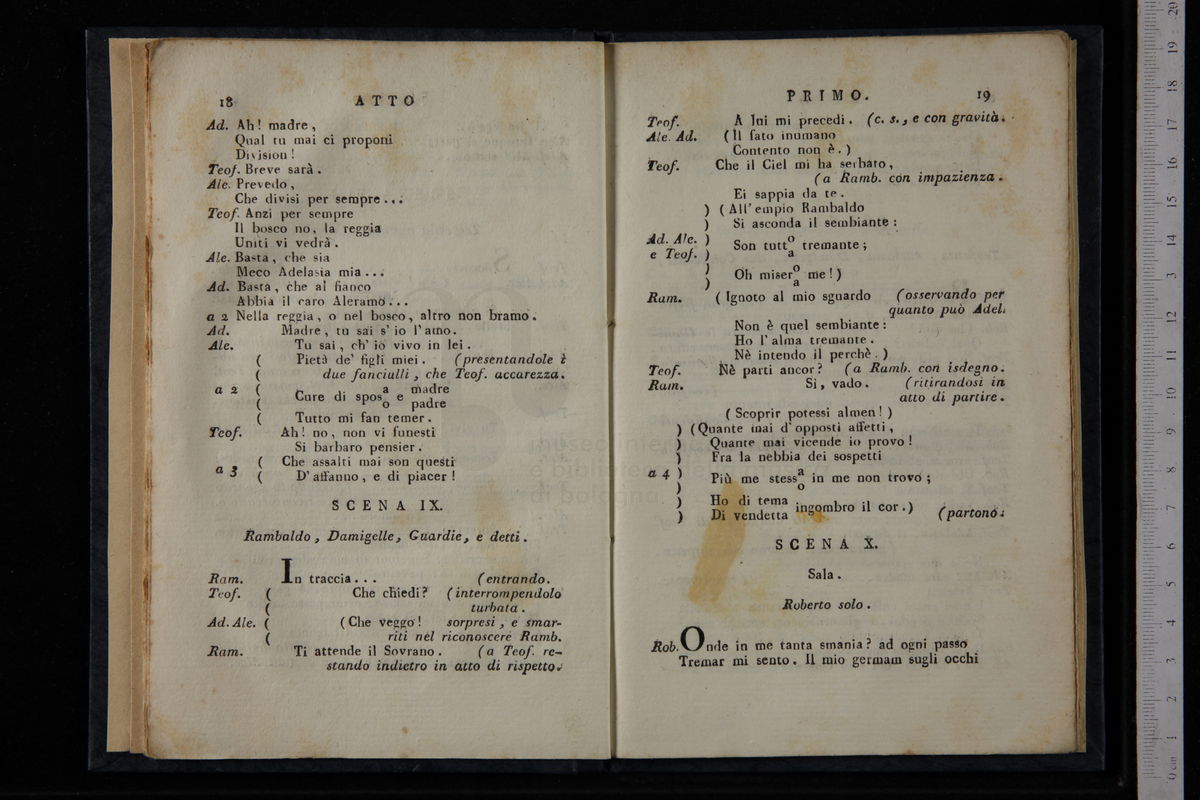 18 ATTO
Ad. Ah! madre,
Qual tu mai ci proponi
Division!
Teof. Breve sarà.
Ale. Prevedo,
Che divisi per sempre...
Teof. Anzi per sempre
Il bosco no, la reggia
Uniti vi vedrà.
Ale. Basta, che sia
Meco Adelasia mia...
Ad. Basta, che al fianco
Abbia il caro Aleramo...
a 2 Nella reggia, o nel bosco, altro non bramo.
Ad. Madre, tu sai s' io l' amo.
Ale. Tu sai, ch' io vivo in lei.
( Pietà de' figli miei. (presentandole i
( due fanciulli, che Teof. accarezza.
a 2 ( Cure di spos a/o e madre
( padre
( Tutto mi fan temer.
Teof. Ah! no, non vi funesti
Si barbaro pensier.
a 3 ( Che assalti mai son questi
( D' affanno, e di piacer!
SCENA IX.
Rambaldo, Damigelle, Guardie, e detti.
Ram. In traccia... (entrando.
Teof. ( Che chiedi? (interrompendolo
( turbata.
Ad. Ale. ( (Che veggo! sorpresi, e smar-
( riti nel riconoscere Ramb.
Ram. Ti attende il Sovrano. (a Teof. re-
stando indietro in atto di rispetto.
PRIMO. 19
Teof. A lui mi precedi. (c. s., e con gravità.
Ale. Ad. (Il fato inumano
Contento non è.)
Teof. Che il Ciel mi ha serbato,
(a Ramb. con impazienza.
Ei sappia da te.
) (All' empio Rambaldo
) Si asconda il sembiante:
Ad. Ale. ) Son tutt o/a tremante;
e Teof. )
) Oh miser o/a me!)
)
Ram. (Ignoto al mio sguardo (osservando per
quanto può Adel.
Non è quel sembiante:
Ho l' alma tremante.
Nè intendo il perchè.)
Teof. Nè parti ancor? (a Ramb. con isdegno.
Ram. Si, vado. (ritirandosi in
atto di partire.
(Scoprir potessi almen!)
) (Quante mai d' opposti affetti,
) Quante mai vicende io provo!
) Fra la nebbia dei sospetti
a 4 ) Più me stess a/o in me non trovo;
)
) Ho di tema ingombro il cor.)
) Di vendetta (partono.
SCENA X.
Sala.
Roberto solo.
Rob. Onde in me tanta smania? ad ogni passo
Tremar mi sento. Il mio germam sugli occhi